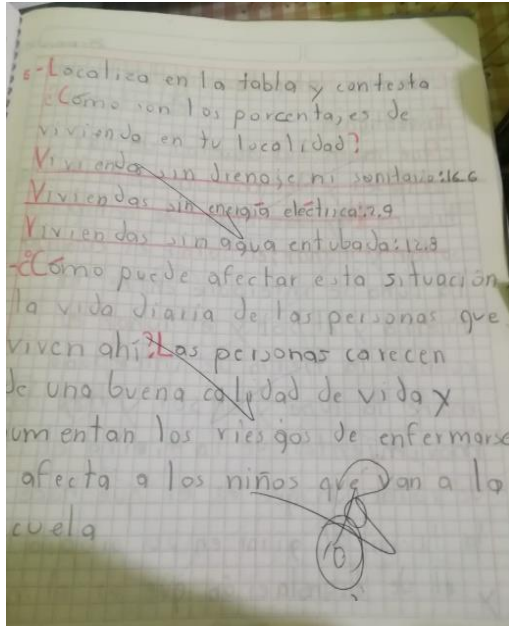 5-Localiza en la tabla y contesta
¿Cómo son los porcentajes de
vivienda en tu localidad?
Viviendas sin drenaje ni sanitario:16.6
Viviendas sin energía eléctrica:2.9
Viviendas sin agua entubada:12.9
-¿Cómo puede afectar esta situación
la vida diaria de las personas que
viven ahí?Las personas carecen
de una buena calidad de vida y
umentan los riesgos de enfermarse
afecta a los niños que van a la
cuela
10